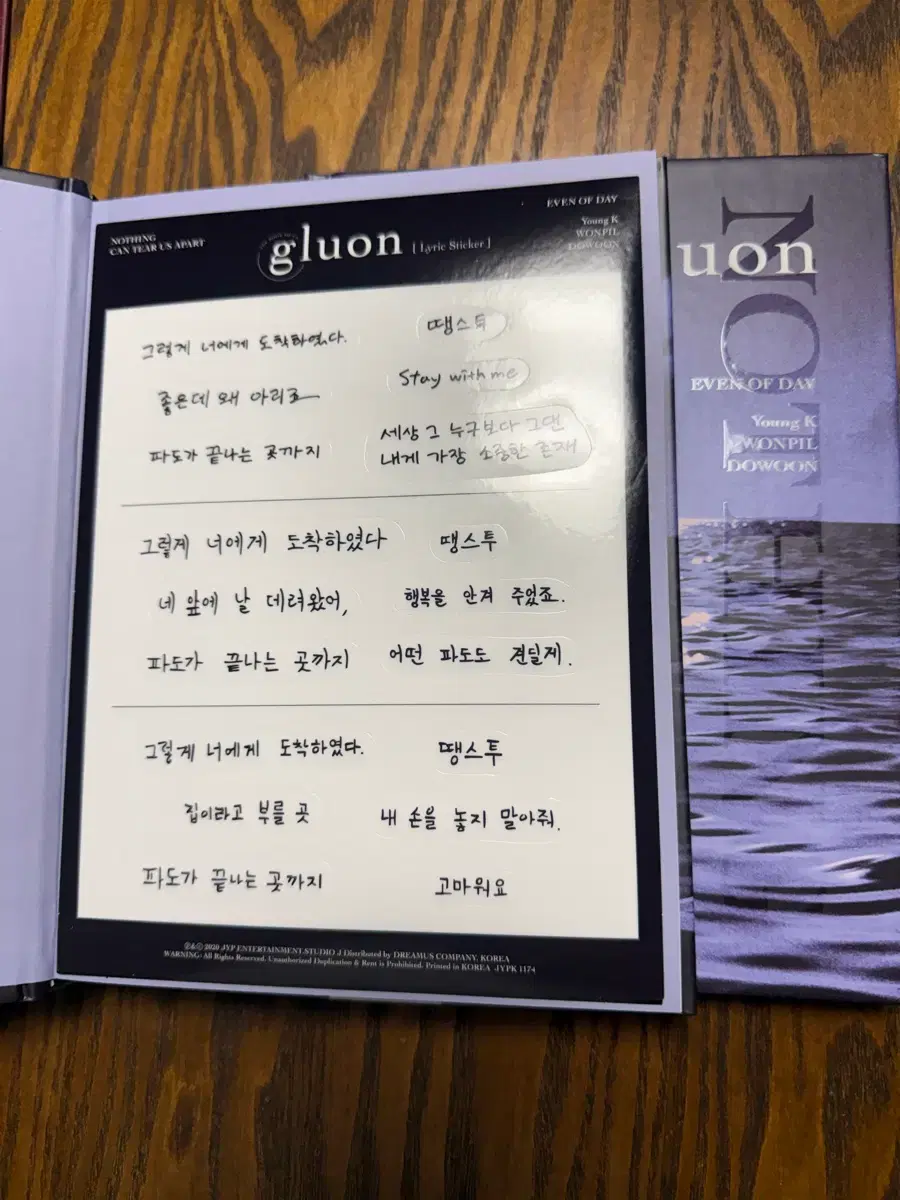 NOTHING
CAN TEAR US APART
gluon [ Lyric Sticker ]
EVEN OF DAY
Young K
WONPIL
DOWOON
그렇게 너에게 도착하였다.
땡스투
좋은데 왜 아리고
Stay with me
파도가 끝나는 곳까지
세상 그 누구보다 그댄
내게 가장 소중한 존재
그렇게 너에게 도착하였다
땡스투
네 앞에 날 데려왔어,
행복을 안겨 주었죠.
파도가 끝나는 곳까지
어떤 파도도 견딜게.
그렇게 너에게 도착하였다.
땡스투
집이라고 부를 곳
내 손을 놓지 말아줘.
파도가 끝나는 곳까지
고마워요
℗&© 2020 JYP ENTERTAINMENT.STUDIO J Distributed by DREAMUS COMPANY, KOREA
WARNING: All Rights Reserved. Unauthorized Duplication & Rent is Prohibited. Printed in KOREA JYPK 1174
uon
EVEN OF DAY
Young K
WONPIL
DOWOON
NOTHI